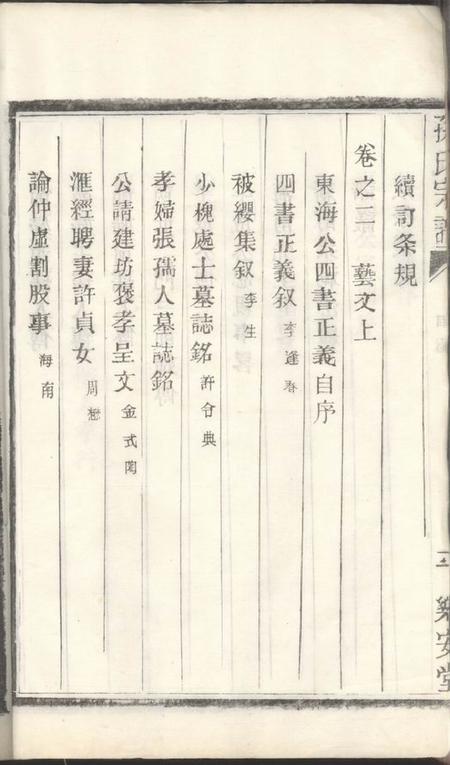 孫氏宗譜
樂安堂
續訂条規
卷之二 藝文上
東海公四書正義自序
四書正義叙 李逢春
被纓集叙 李生
少槐處士墓誌銘 許合典
孝婦張孺人墓誌銘
公請建坊褒孝呈文 金式陶
滙經聘妻許貞女 周懋
論仲虛割股事 海南